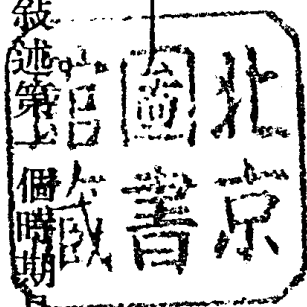 北京
圖書
館藏
敍述第一個時期